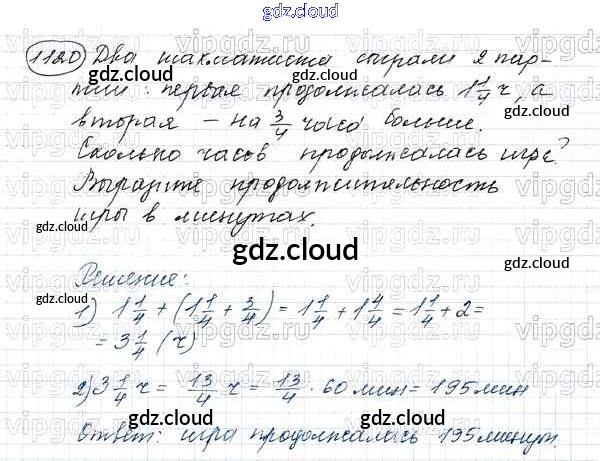 gdz.cloud
1120 Два шахматиста сыграли 2 пар-
тии: первая продолжалась 1 1/4 ч, а
вторая – на 3/4 часа больше.
Сколько часов продолжалась игра?
Выразите продолжительность
игры в минутах.
gdz.cloud
Решение:
1) 1 1/4 + (1 1/4 + 3/4) = 1 1/4 + 1 4/4 = 1 1/4 + 2 =
= 3 1/4 (ч)
2) 3 1/4 ч = 13/4 ч = 13/4 · 60 мин = 195 мин
Ответ: игра продолжалась 195 минут.
gdz.cloud